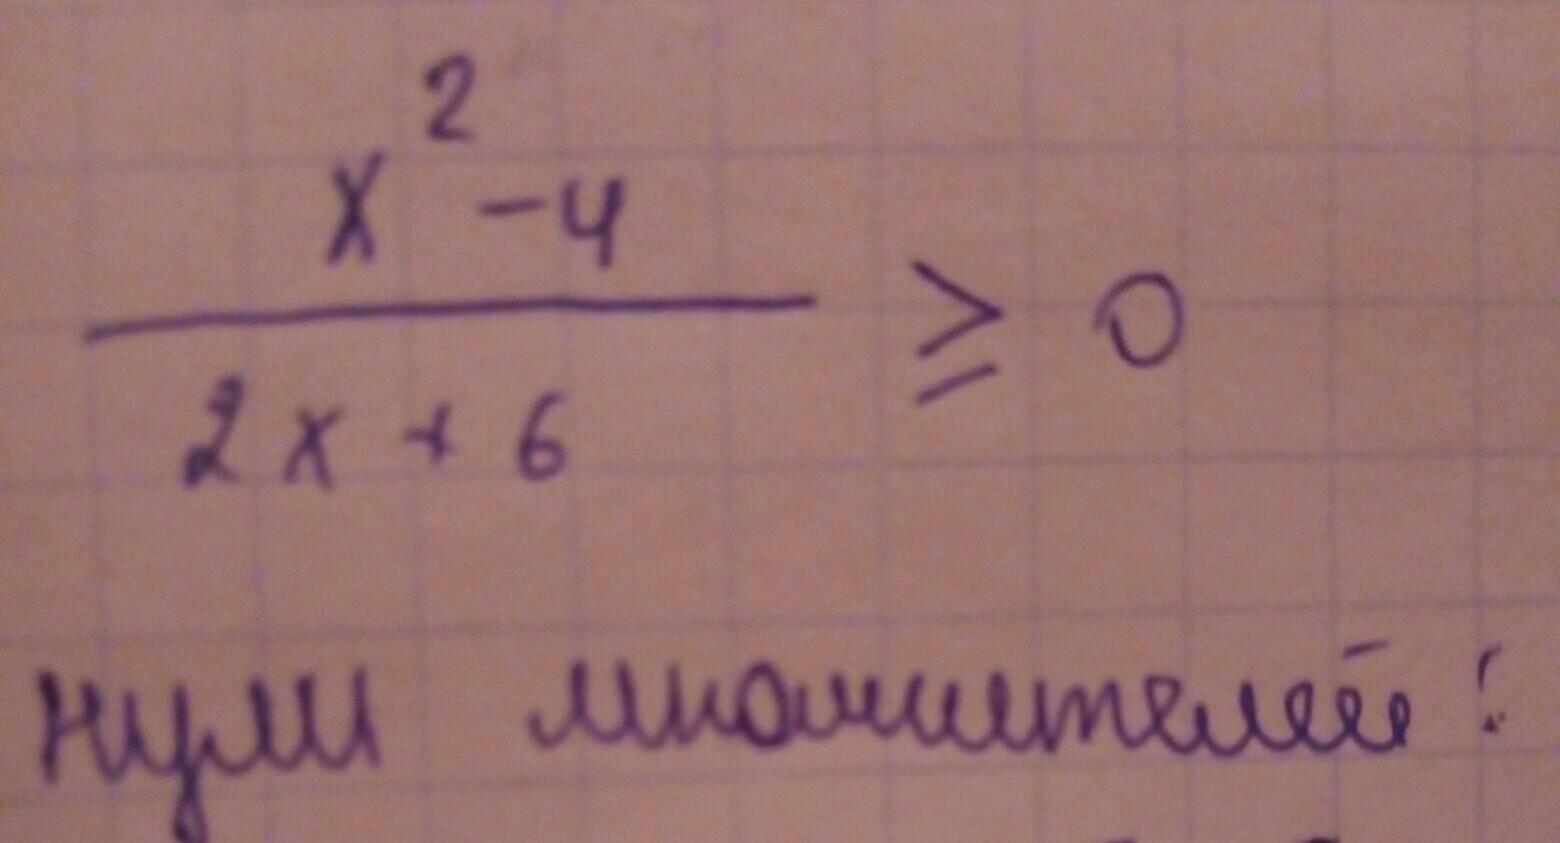 x² - 4
2x + 6
≥ 0
нули множителей: